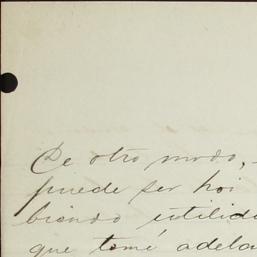 De otro modo,
puede ser hoi
biendo utilid
que tomé adela